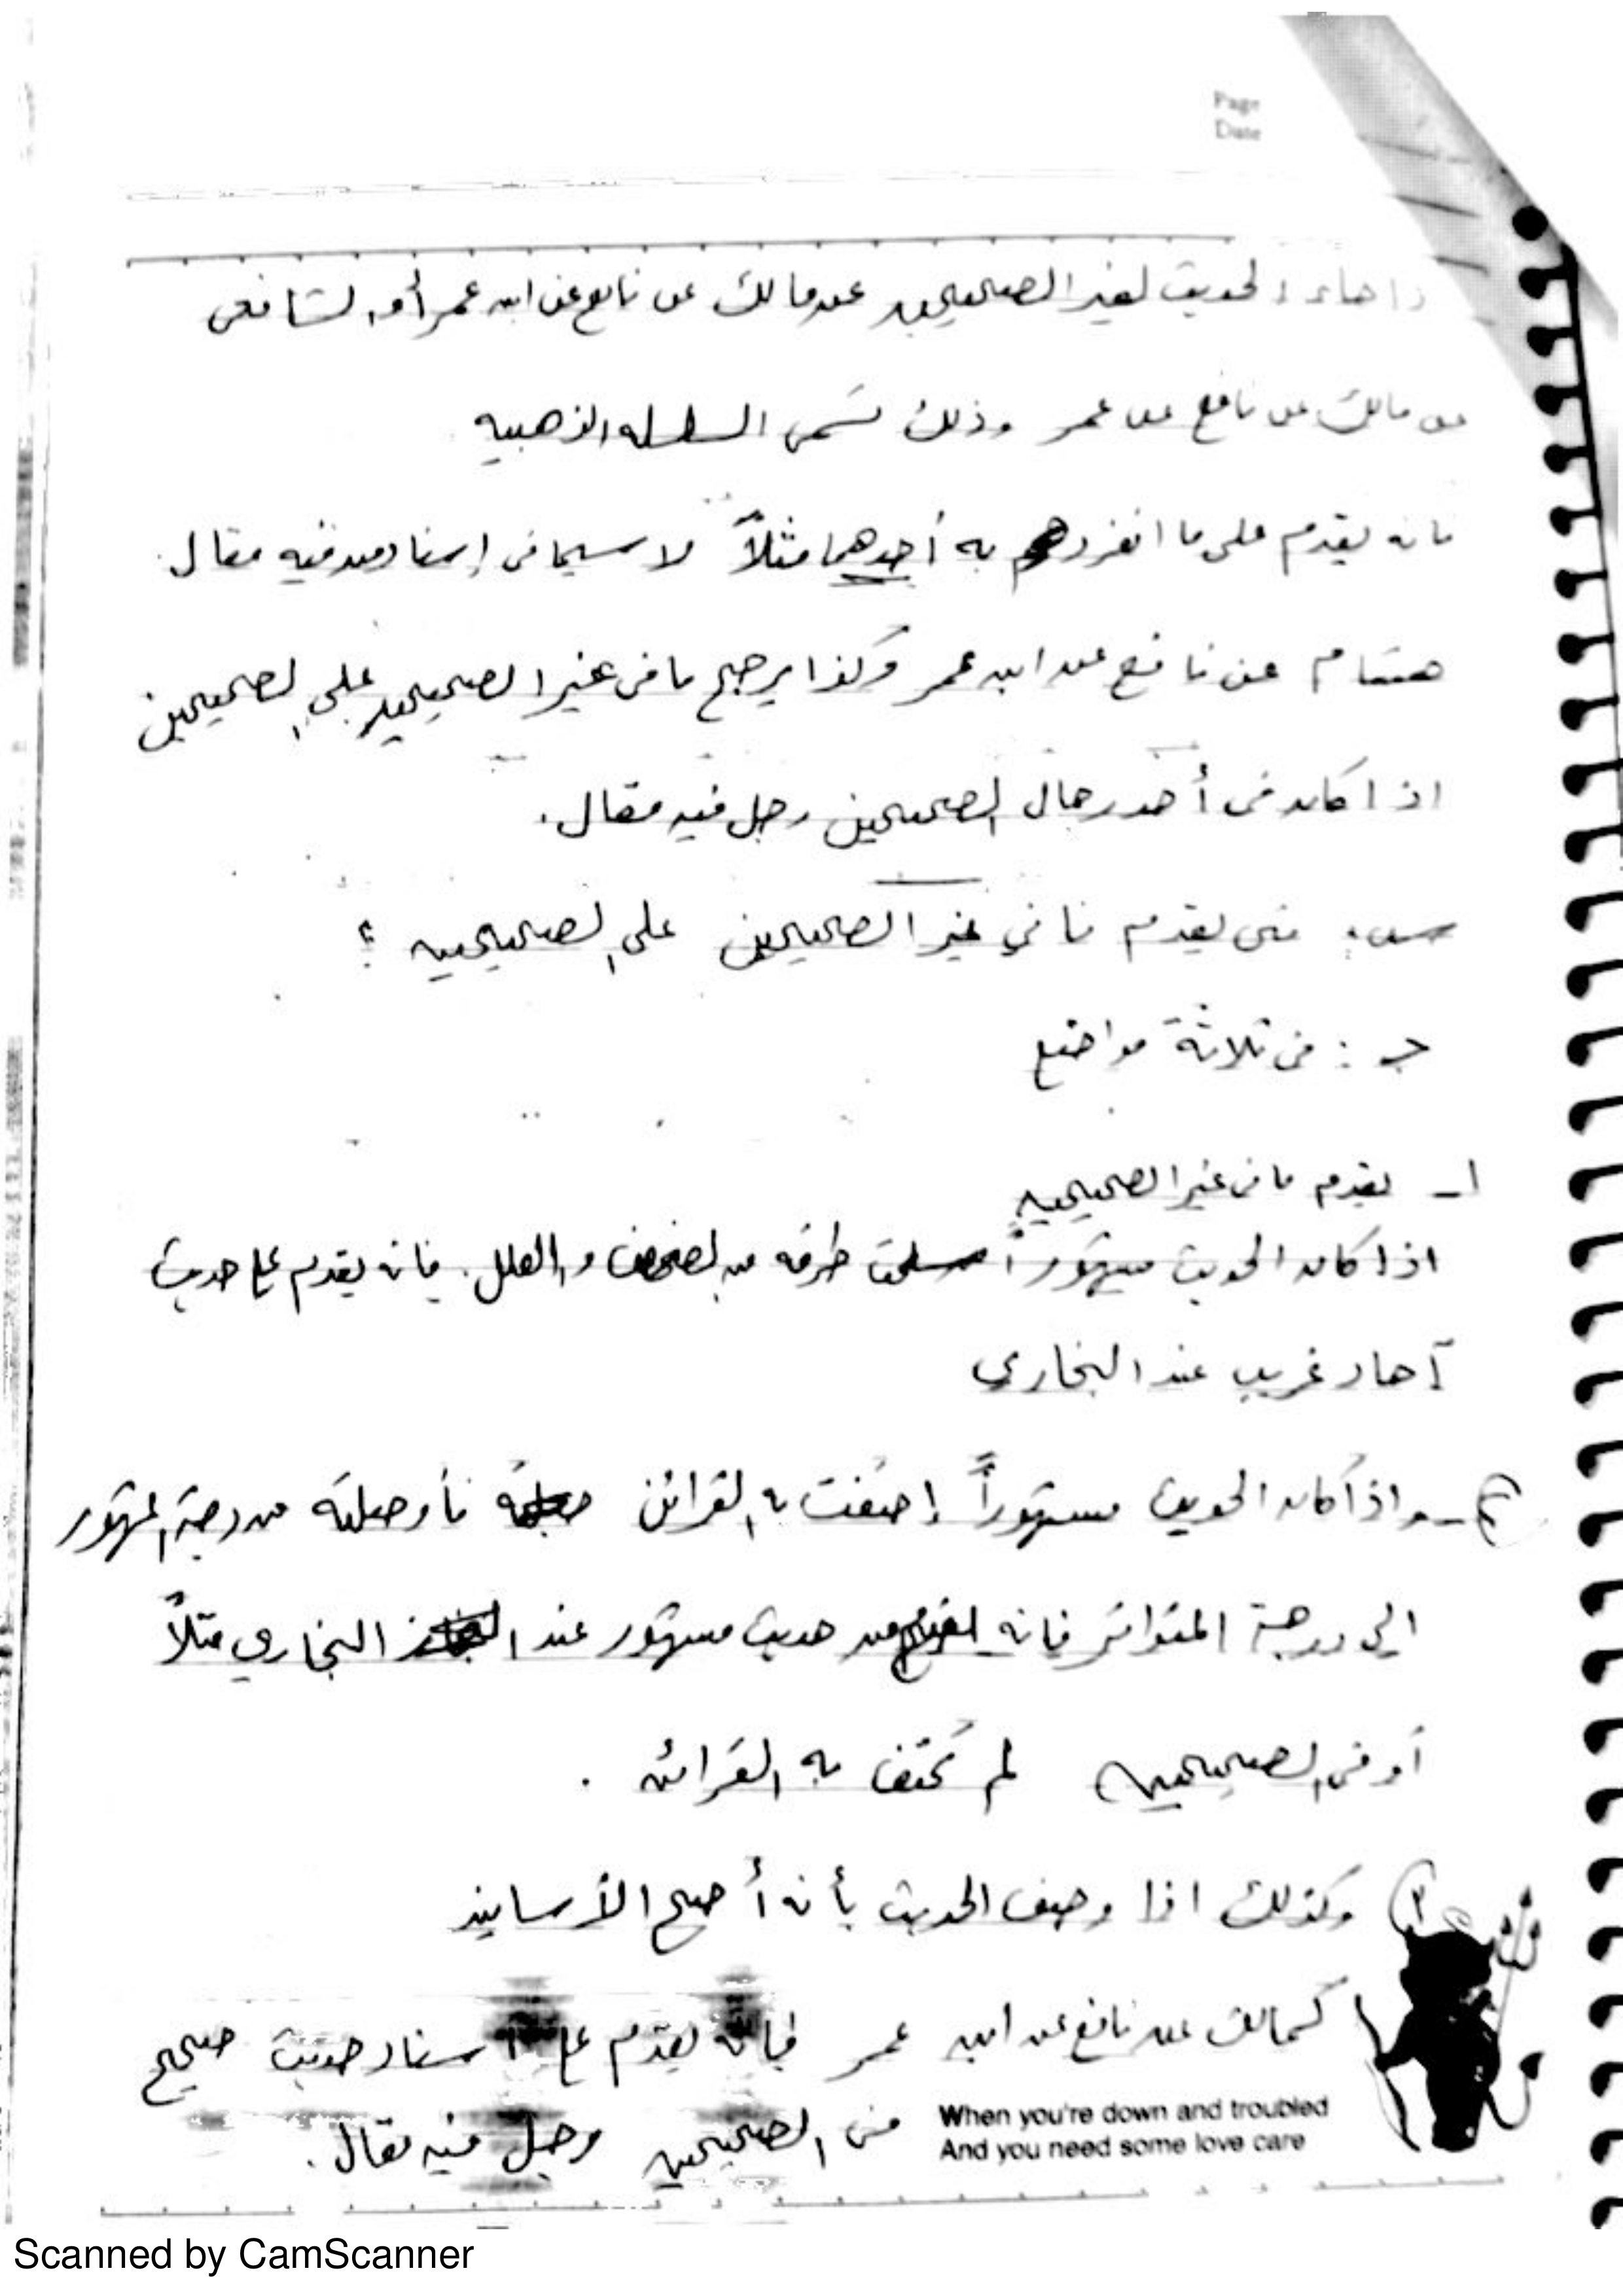 Page
Date
الحديث لغير الصحيحين عن مالك عن نافع عن ابن عمر أو الشافعى
عن مالك عن نافع عن عمر وذلك تسمى السلسله الذهبيه
فانه يقدم على ما انفرد به أحدهما مثلاً لا سيما فى إسناد من فيه مقال
هشام عن نافع عن ابن عمر وكذا يرجح ما فى غير الصحيحين على الصحيحين
اذا كان فى أحد رجال الصحيحين رجل فيه مقال.
س: متى يقدم ما في غير الصحيحين على الصحيحين ؟
جـ : فى ثلاثة مواضع
١- يقدم ما فى غير الصحيحين
اذا كان الحديث مشهوراً سلمت طرقه من الضعف والعلل. فانه يقدم على حديث
آحاد غريب عند البخاري
٢- واذا كان الحديث مشهوراً إحتفت به القرائن فأوصلته من درجة المشهور
الى درجة المتواتر فانه من حديث مشهور عند البخاري مثلاً
أو فى الصحيحين لم تحتف به القرائن .
٣) وكذلك اذا وصف الحديث بأنه أصح الأسانيد
كمالك عن نافع عن ابن عمر فإنه يقدم على اسناد حديث صحيح
فى الصحيحين رجل فيه مقال.
When you're down and troubled
And you need some love care
Scanned by CamScanner